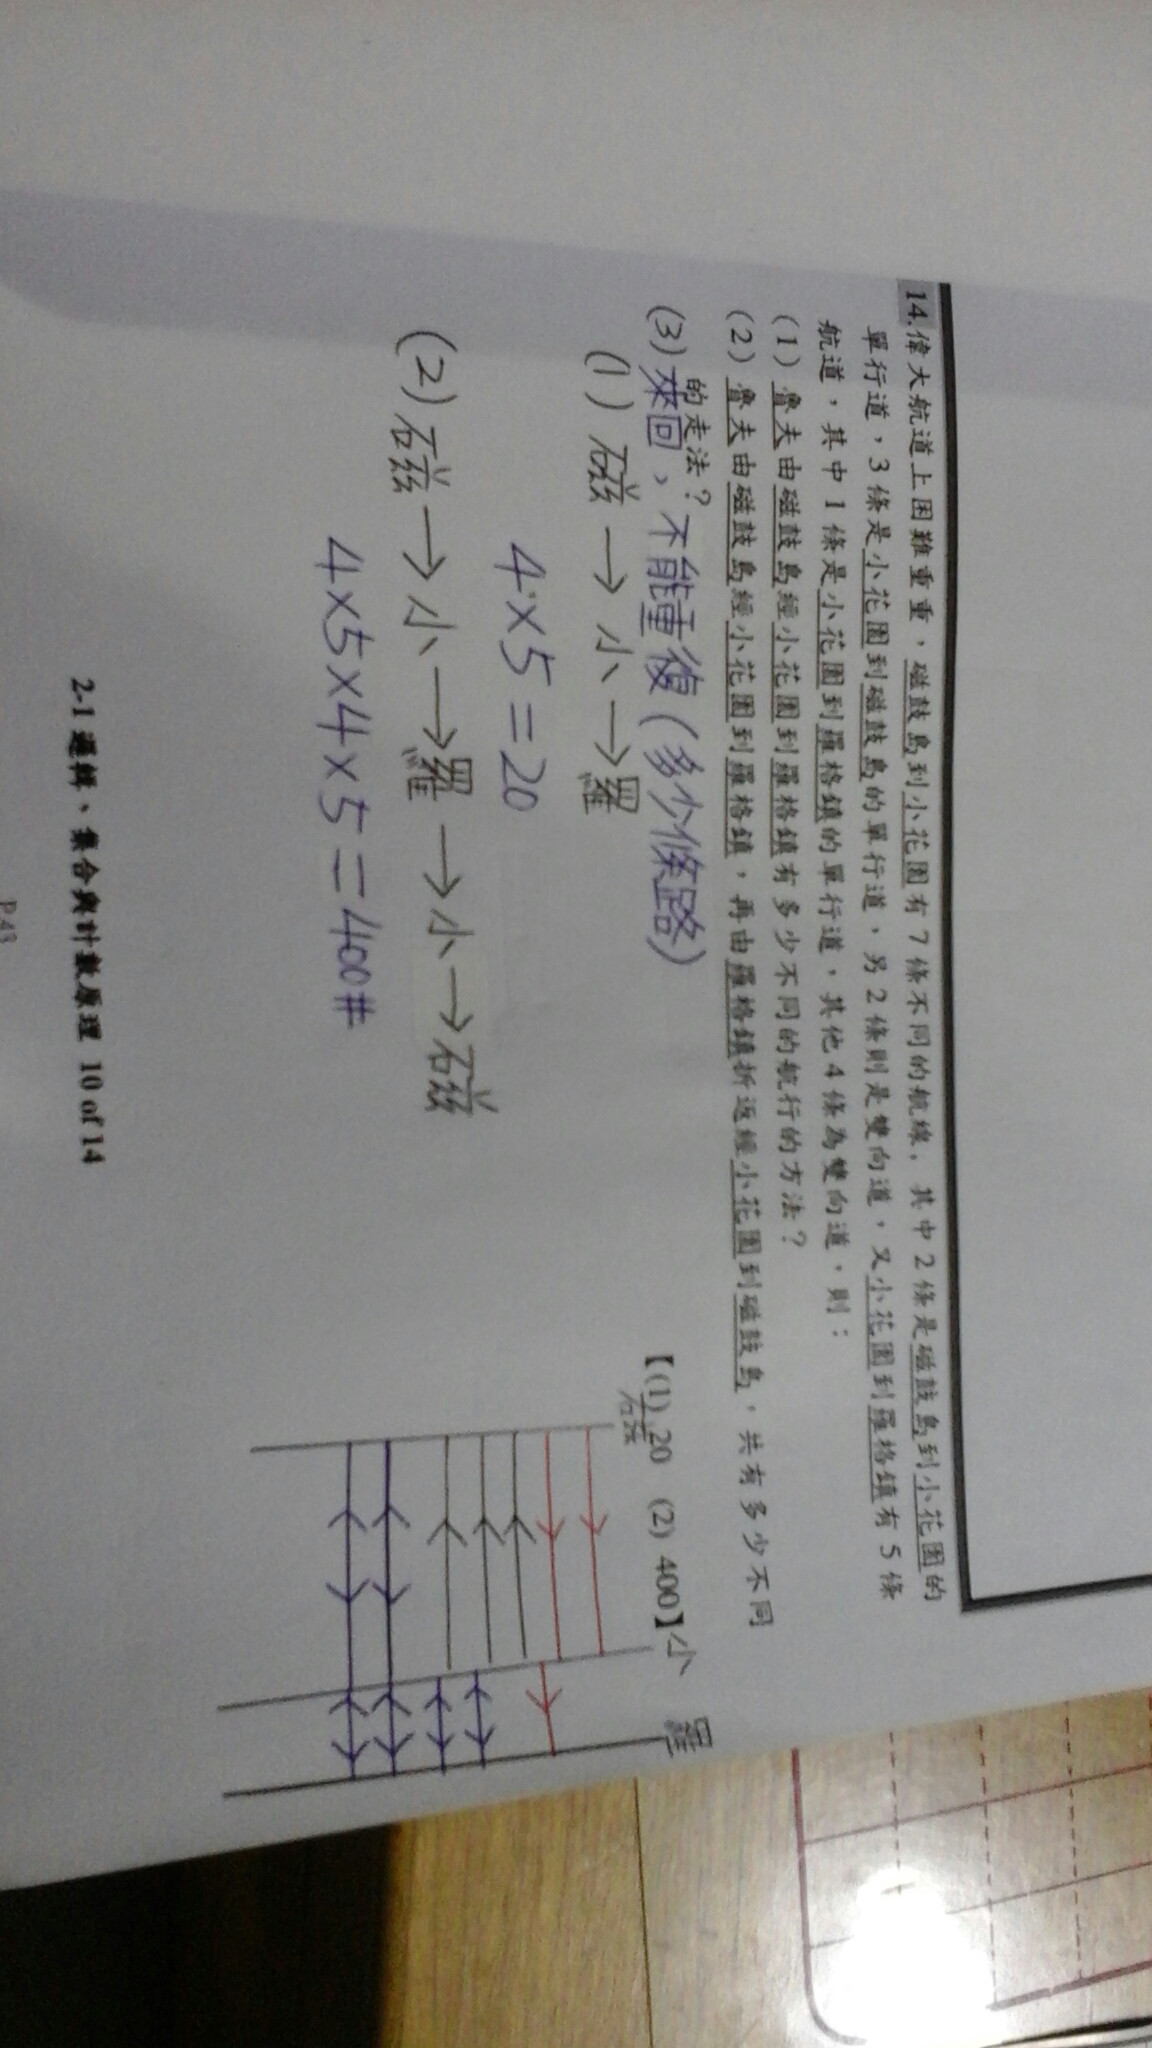 14.偉大航道上困難重重，磁鼓島到小花園有7條不同的航線，其中2條是磁鼓島到小花園的
單行道，3條是小花園到磁鼓島的單行道，另2條則是雙向道，又小花園到羅格鎮有5條
航道，其中1條是小花園到羅格鎮的單行道，其他4條為雙向道，則：
(1) 魯夫由磁鼓島經小花園到羅格鎮有多少不同的航行的方法？
(2) 魯夫由磁鼓島經小花園到羅格鎮，再由羅格鎮折返經小花園到磁鼓島，共有多少不同
的走法？
【(1) 20 (2) 400】
(3) 來回，不能重復(多少條路)
(1) 磁→小→羅
4×5=20
(2) 磁→小→羅→小→磁
4×5×4×5=400#
磁 小 羅
2-1 邏輯、集合與計數原理 10 of 14
P.43